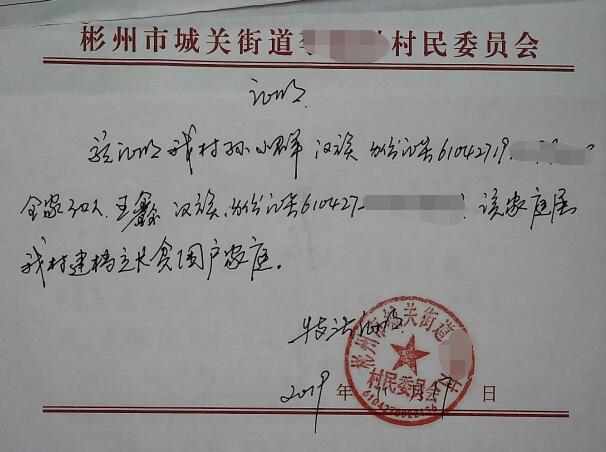 彬州市城关街道 村民委员会
证明
兹证明我村孙小群 汉族 身份证号61042719
全家3口人,王鑫 汉族,身份证号610427 该家庭属
我村建档立卡贫困户家庭。
特此证明
彬州市城关街道
村民委员会
2019年 月 日